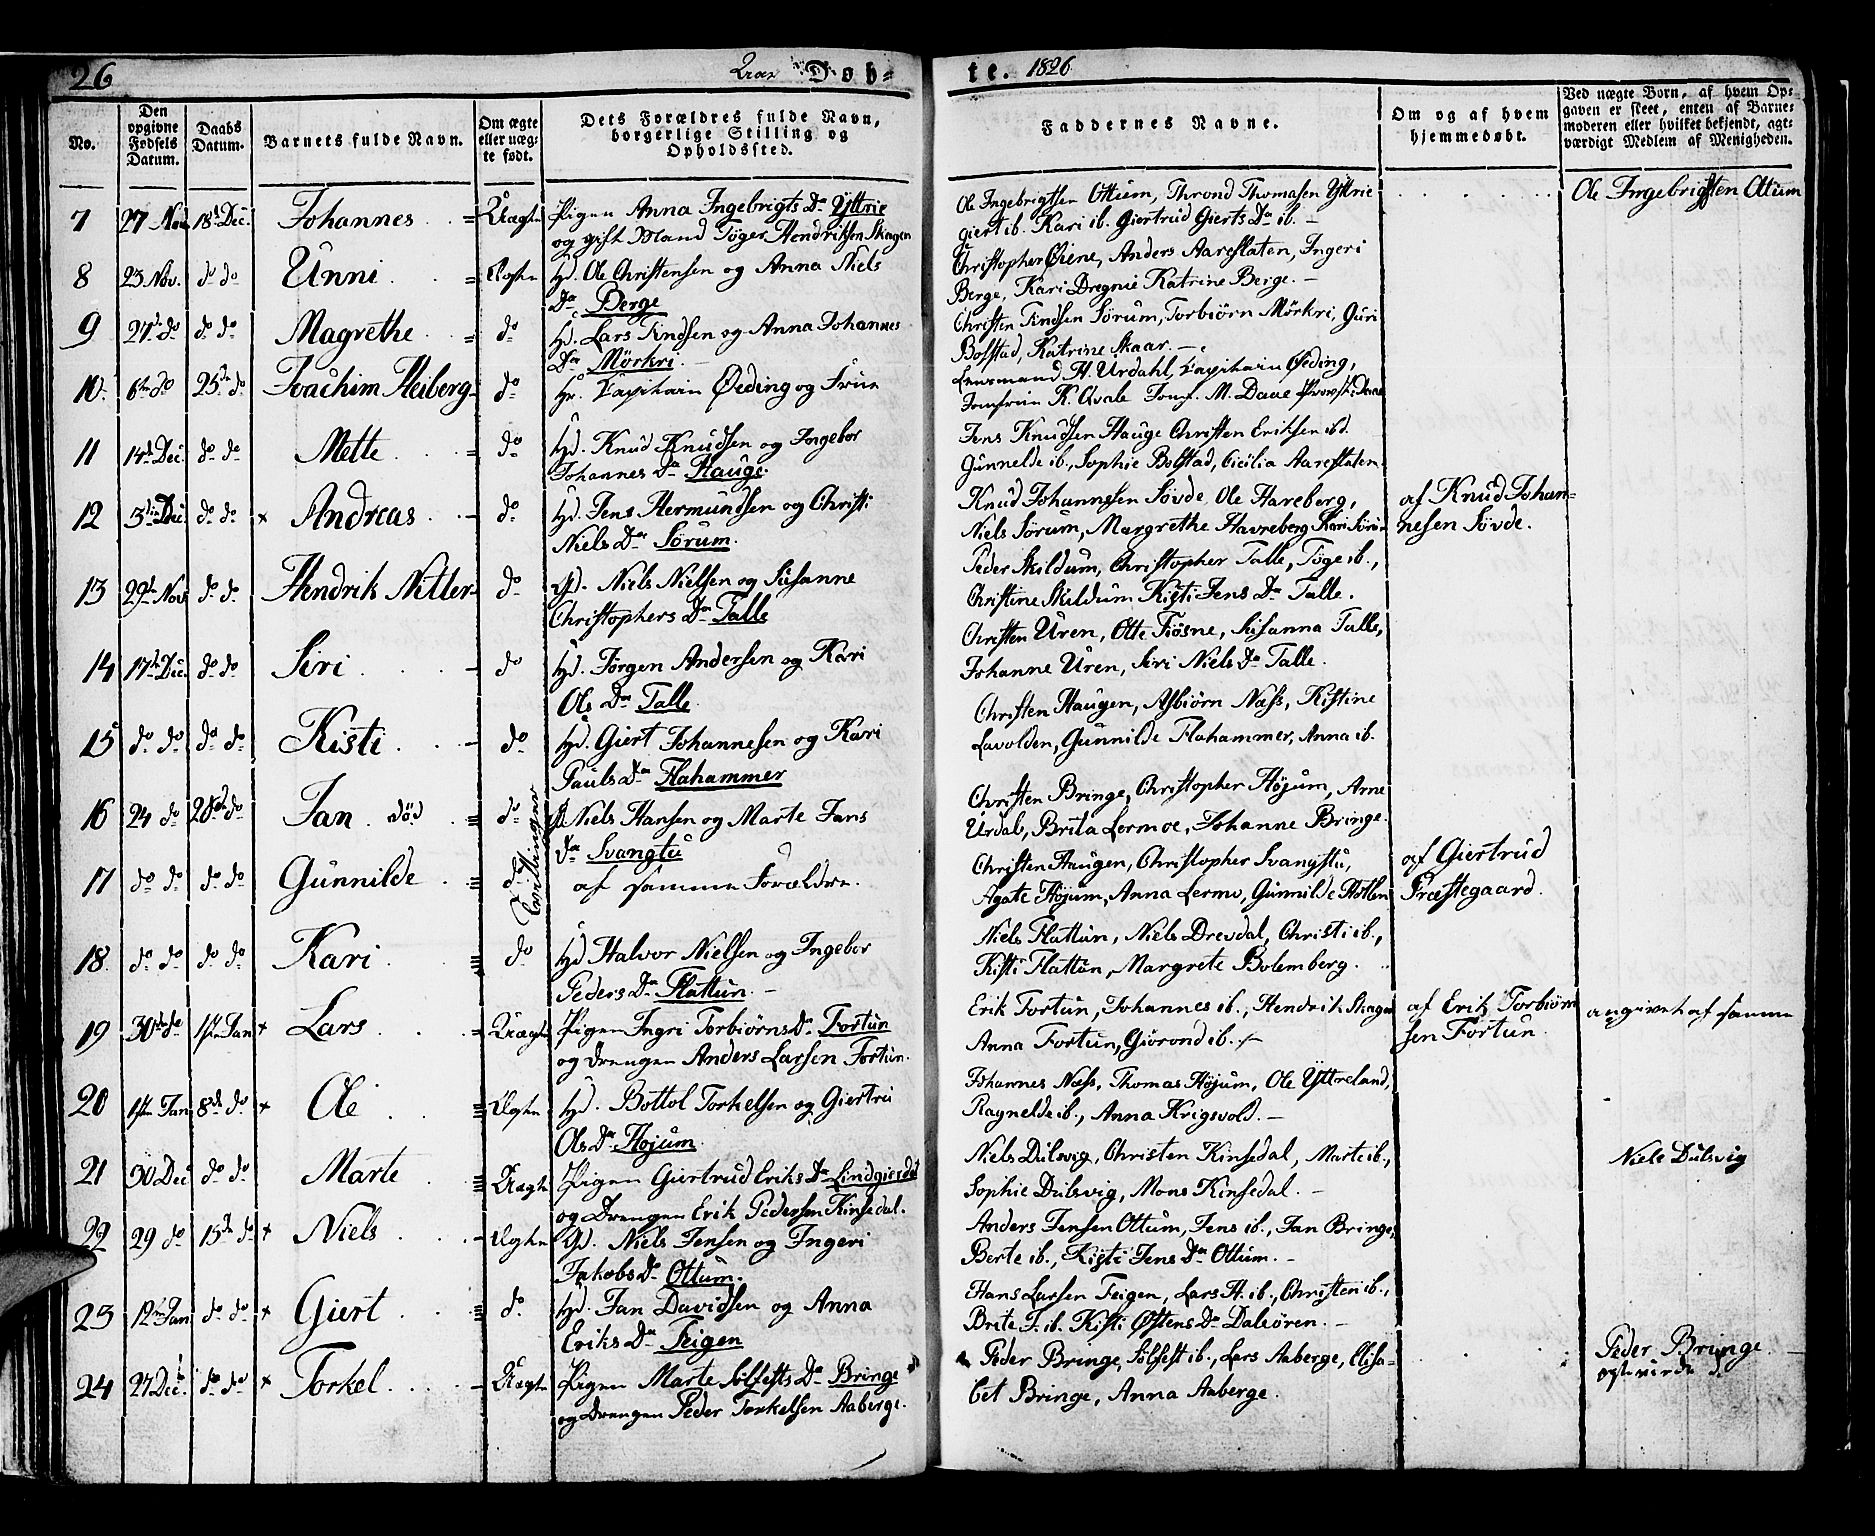 26
Døb=
te. 1826
No.
Den opgivne Fødsels Datum.
Daabs Datum.
Barnets fulde Navn.
Om ægte eller uægte født.
Dets Forældres fulde Navn, borgerlige Stilling og Opholdssted.
Faddernes Navne.
Om og af hvem hjemmedøbt.
Ved uægte Born, af hvem Opgaven er skeet, enten af Barnemoderen eller hvilket bekjendt, agtværdigt Medlem af Menigheden.
7 27 Nov 18d Dec. Johannes Uægte Pigen Anna Ingebrigts Dr Yttrie
og gift Mand Töger Hendriksen Skagen
Ole Ingebrigtsen Ottum, Thrond Thomasen Yttrie
giert ib. Kari ib. Giertrud Gierts Dr ib.
Ole Ingebrigtsen Otum
8 23 Nov. do do Unni Ægte Hd. Ole Christensen og Anna Niels
Dr Berge
Christopher Øiene, Anders Aareflaten, Ingeri
Berge, Kari Dregnie Katrine Berge.
9 27 do do do Magrethe do Hd. Lars Endsen og Anna Johannes
Dr Mörkri
Christen Endsen Sørum, Torbiörn Mörkri, Guri
Bolstad, Katrine Skaar.
10 6te do 25de do Joachim Heiberg do Hr. Kapitain Øeding og Frue
Lensmand H. Urdahl, Kapitain Øeding,
Jomfrue K. Qvale Jomf. M. Daae
11 14d Dec. do do Mette do Hd. Knud Knudsen og Ingebor
Johannes Dr Hauge
Jens Knudsen Hauge Christen Eriksen ibd.
Gunnelde ib., Sophie Bolstad, Cicilia Aareflaten
12 3die Dec do do × Andreas do Hd. Jens Hermundsen og Christi
Niels Dr Sörum.
Knud Johannesen Søvde, Ole Havreberg,
Niels Sörum, Margrethe Havreberg Kari Sörum
af Knud Johan=
nesen Sövde.
13 29de Nov do do Hendrik Nitter do Gd. Niels Nielsen og Susanne
Christophers Dr Talle
Peder Skildum, Christopher Talle, Töge ib.,
Christine Skildum Kisti Jens Dr Talle.
14 17de Dec. do do Siri do Hd. Jörgen Andersen og Kari
Ols Dr Talle
Christen Uren, Otte Fiösne, Susanna Talle,
Johanne Uren, Siri Niels Dr Talle.
15 do do do do Kisti do Hd. Giert Johannesen og Kari
Pauls Dr Flahammer
Christen Haugen, Asbiörn Næss, Kistine
Lavolden, Gunnilde Flahammer, Anna ib.
16 24 do 28de do Jan död do Niels Hansen og Marte Jans
Dr Svangtu
Christen Bringe, Christopher Höjum, Arne
Urdal, Brita Lermoe, Johanne Bringe.
Tvillinger
17 do do do do Gunnilde do af samme Forældre.
Christen Haugen, Christopher Svangstu,
Agate Höjum, Anna Lermo, Gunnilde
af Giertrud
Præstegaard.
18 do do do do Kari do Hd Halvor Nielsen og Ingebor
Peders Dr Flattun.
Niels Flattun, Niels Drevdal, Christi ib.,
Kisti Flattun, Margrete Bolemberg.
19 30te do 1ste Jan × Lars Uægte Pigen Ingri Torbiörns Dr Fortun
og drengen Anders Larsen Fortun.
Erik Fortun, Johannes ib., Hendrik Skagen
Anna Fortun, Giörond ib.
af Erik Torbiörn
sen Fortun.
angivet af samme
20 1ste Jan 8de do × Ole Ægte Hd. Bottol Torkelsen og Giertru
Ols Dr Höjum.
Johannes Næss, Thomas Höjum, Ole Yttreland,
Ragnelde ib., Anna Krigsvold.
21 30 Dec do do Marte Uægte Pigen Giertrud Eriks Dr
og Drengen Erik Pedersen Kinsedal.
Niels Dulsvig, Christen Kinsedal, Marte ib.,
Sophie Dulsvig, Mons Kinsedal.
Niels Dulsvig
22 29 do 15de do × Niels Ægte Gd. Niels Jensen og Ingeri
Jakobs Dr Ottum.
Anders Jensen Ottum, Jens ib., Jan Bringe,
Berte ib., Kisti Jens Dr Ottum.
23 12te Jan do do × Giert do Hd. Jan Davidsen og Anna
Eriks Dr Feigen
Hans Larsen Feigen, Lars H. ib., Christen ib.,
Brite F. ib. Kisti Östens Dr Dalsören.
24 27 Dec. do do × Torkel Uægte Pigen Marte Solfests Dr Bringe
og Drengen Peder Torkelsen Aaberge.
Peder Bringe, Solfest ib., Lars Aaberge, Elisa=
bet Bringe, Anna Aaberge.
Peder Bringe